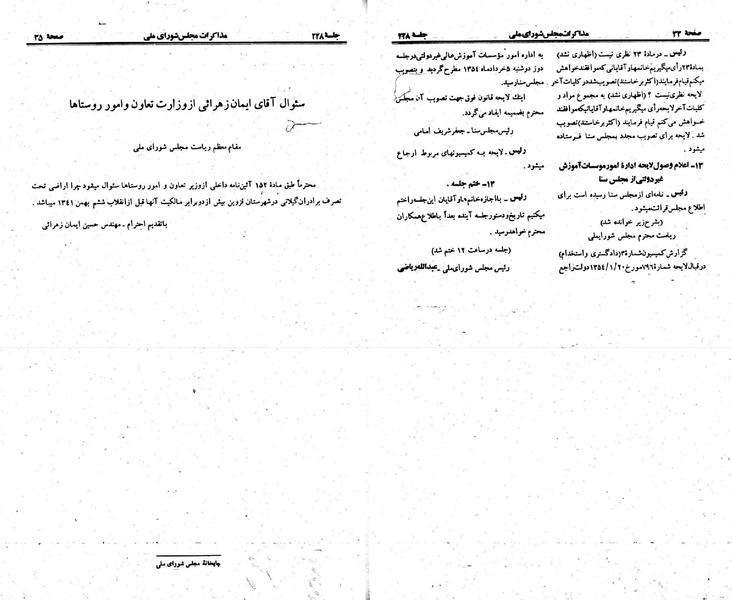 صفحهٔ ۳۴
مذاکرات مجلس شورای ملی
جلسهٔ ۲۲۸
رئیس ـ در مادهٔ ۲۳ نظری نیست (اظهاری نشد)
بمادهٔ ۲۳ رأی میگیریم خانمها و آقایانی که موافقند خواهش
میکنم قیام فرمایند (اکثر برخاستند) تصویب شد در کلیات آخر
لایحه نظری نیست ؟ (اظهاری نشد) به مجموع مواد و
کلیات آخر لایحه رأی میگیریم خانمها و آقایانیکه موافقند
خواهش می‌کنم قیام فرمایند (اکثر برخاستند) تصویب
شد . لایحه برای تصویب مجدد بمجلس سنا فرستاده
میشود .
۱۳- اعلام وصول لایحه ادارهٔ امور موسسات آموزش
غیر دولتی از مجلس سنا
رئیس ـ نامه‌ای از مجلس سنا رسیده است برای
اطلاع مجلس قرائت میشود.
(بشرح زیر خوانده شد)
ریاست محترم مجلس شورایملی
گزارش کمیسیون شمارهٔ ۳ (دادگستری و استخدام)
در قبال لایحه شمارهٔ ۷۹۶ مورخ ۱۳۵۴/۱/۲۰ دولت راجع
به اداره امور مؤسسات آموزش عالی غیر دولتی در جلسه
روز دوشنبه ۵ خرداد ماه ۱۳۵۴ مطرح گردید و بتصویب
مجلس سنا رسید.
اینك لایحه قانون فوق جهت تصویب آن مجلس
محترم بضمیمه ایفاد می‌گردد.
رئیس مجلس سنا ـ جعفر شریف امامی
رئیس ـ لایحه به کمیسیونهای مربوط ارجاع
میشود .
۱۴- ختم جلسه .
رئیس ـ با اجازه خانم‌ها و آقایان این جلسه را ختم
میکنیم تاریخ و دستور جلسه آینده بعداً باطلاع همکاران
محترم خواهد رسید .
(جلسه در ساعت ۱۲ ختم شد)
رئیس مجلس شورای ملی ـ عبدالله ریاضی
جلسهٔ ۲۲۸
مذاکرات مجلس شورای ملی
صفحهٔ ۳۵
سئوال آقای ایمان زهرائی از وزارت تعاون و امور روستاها
مقام معظم ریاست مجلس شورای ملی
محترماً طبق مادهٔ ۱۵۲ آئین‌نامه داخلی از وزیر تعاون و امور روستاها سئوال میشود چرا اراضی تحت
تصرف برادران گیلانی در شهرستان قزوین بیش از دو برابر مالکیت آنها قبل از انقلاب ششم بهمن ۱۳۴۱ میباشد .
باتقدیم احترام ـ مهندس حسین ایمان زهرائی
چاپخانهٔ مجلس شورای ملی